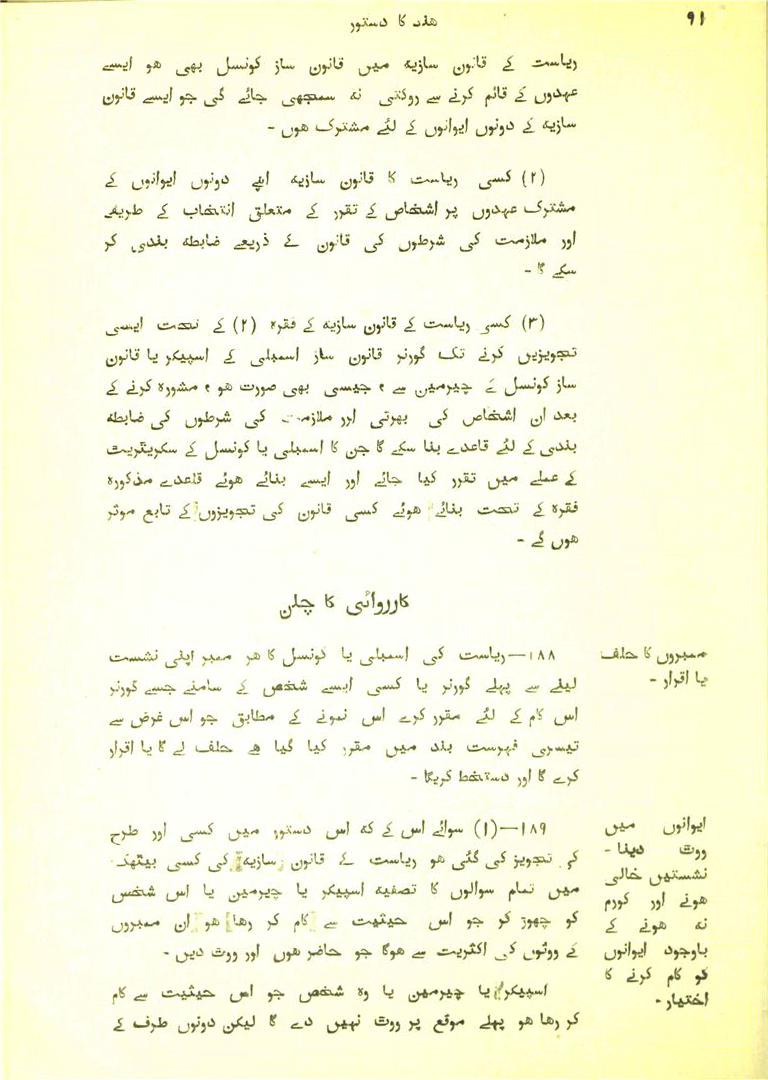 ۹۱
ھند کا دستور
ریاست کے قانون سازیہ میں قانون ساز کونسل بھی ھو ایسے
عہدوں کے قائم کرنے سے روکتی نہ سمجھی جائے گی جو ایسے قانون
سازیہ کے دونوں ایوانوں کے لئے مشترک ھوں -
(۲) کسی ریاست کا قانون سازیہ اپنے دونوں ایوانوں کے
مشترک عہدوں پر اشخاص کے تقرر کے متعلق انتخاب کے طریقے
اور ملازمت کی شرطوں کی قانون کے ذریعے ضابطہ بندی کر
سکے گا -
(۳) کسی ریاست کے قانون سازیہ کے فقرہ (۲) کے تحت ایسی
تجویزیں کرنے تک گورنر قانون ساز اسمبلی کے اسپیکر یا قانون
ساز کونسل کے چیرمین سے ، جیسی بھی صورت ھو ، مشورہ کرنے کے
بعد ان اشخاص کی بھرتی اور ملازمت کی شرطوں کی ضابطہ
بندی کے لئے قاعدے بنا سکے گا جن کا اسمبلی یا کونسل کے سکریٹریٹ
کے عملے میں تقرر کیا جائے اور ایسے بنائے ھوئے قاعدے مذکورہ
فقرہ کے تحت بنائے ھوئے کسی قانون کی تجویزوں کے تابع موثر
ھوں گے -
کارروائی کا چلن
ممبروں کا حلف
یا اقرار -
۱۸۸—ریاست کی اسمبلی یا کونسل کا ھر ممبر اپنی نشست
لینے سے پہلے گورنر یا کسی ایسے شخص کے سامنے جسے گورنر
اس کام کے لئے مقرر کرے اس نمونے کے مطابق جو اس غرض سے
تیسری فہرست بند میں مقرر کیا گیا ھے حلف لے گا یا اقرار
کرے گا اور دستخط کریگا -
ایوانوں میں
ووٹ دینا -
نشستیں خالی
ھونے اور کورم
نہ ھونے کے
باوجود ایوانوں
کو کام کرنے کا
اختیار -
۱۸۹—(۱) سوائے اس کے کہ اس دستور میں کسی اور طرح
کی تجویز کی گئی ھو ریاست کے قانون سازیہ کی کسی بیٹھک
میں تمام سوالوں کا تصفیہ اسپیکر یا چیرمین یا اس شخص
کو چھوڑ کر جو اس حیثیت سے کام کر رھا ھو ان ممبروں
کے ووٹوں کی اکثریت سے ھوگا جو حاضر ھوں اور ووٹ دیں -
اسپیکر یا چیرمین یا وہ شخص جو اس حیثیت سے کام
کر رھا ھو پہلے موقع پر ووٹ نہیں دے گا لیکن دونوں طرف کے